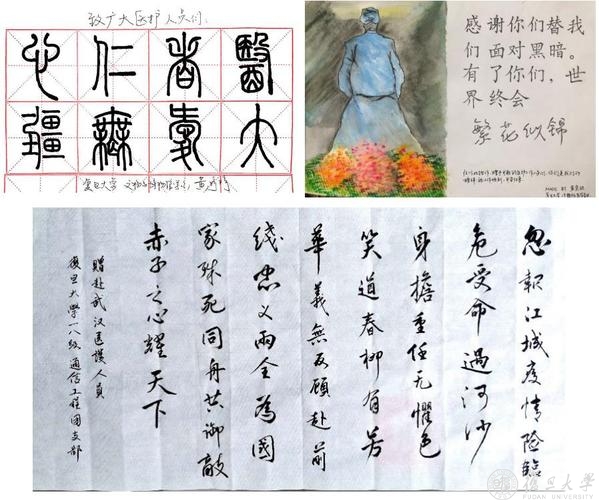 致广大医护人员们：
醫者仁心
大愛無疆
复旦大学
感谢你们替我
们面对黑暗。
有了你们，世
界终会
繁花似锦
MADE BY
忽報江城疫情险臨
危受命過河沙
身擔重任无懼色
笑道春柳有芳
華義無反顧赴前
线忠义兩全為國
家殊死同舟共御敵
赤子之心耀天下
贈赴武汉医護人員
復旦大學一八级通信工程团支部
復旦大學
FUDAN UNIVERSITY